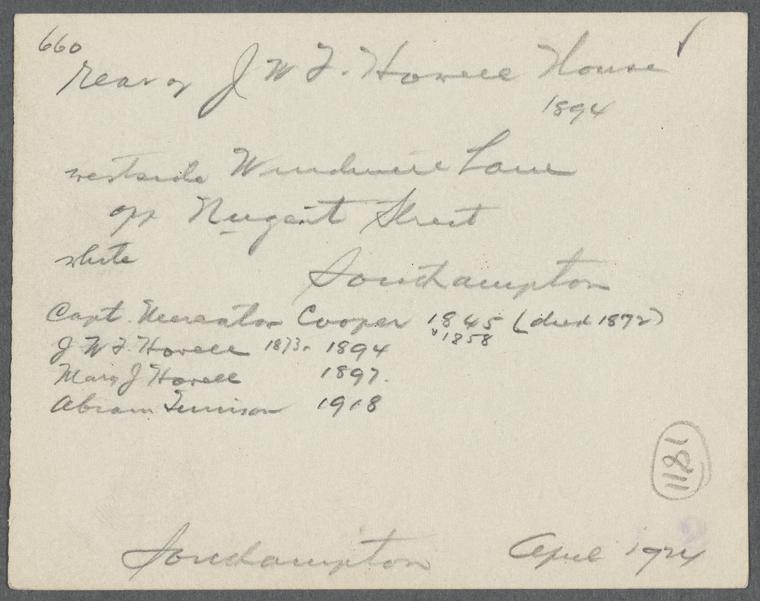 660
rear of J W F. Howell House
1894
westside Windmill Lane
opp Nugent Street
white
Southampton
Capt. Mercator Cooper 1845 (died 1872)
J W F. Howell 1873. 1894 & 1858
Mary J Howell 1897.
Abram 1918
1181
Southampton April 1924